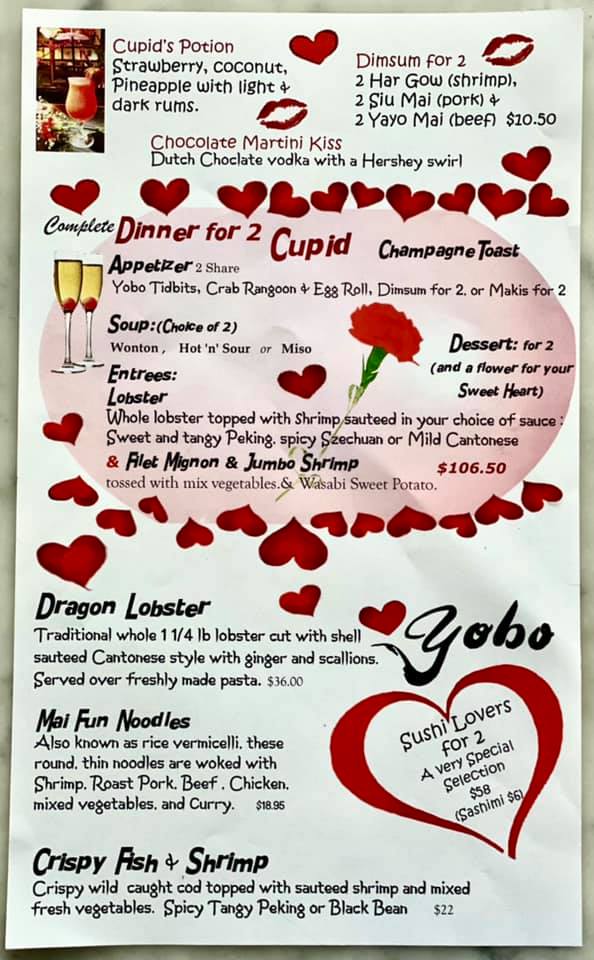 Cupid's Potion
Strawberry, coconut,
Pineapple with light &
dark rums.
Dimsum for 2
2 Har Gow (shrimp),
2 Siu Mai (pork) &
2 Yayo Mai (beef) $10.50
Chocolate Martini Kiss
Dutch Choclate vodka with a Hershey swirl
Complete Dinner for 2 Cupid Champagne Toast
Appetizer 2 Share
Yobo Tidbits, Crab Rangoon & Egg Roll, Dimsum for 2, or Makis for 2
Soup: (Choice of 2)
Wonton , Hot 'n' Sour or Miso
Dessert: for 2
(and a flower for your
Sweet Heart)
Entrees:
Lobster
Whole lobster topped with Shrimp sauteed in your choice of sauce :
Sweet and tangy Peking, spicy Szechuan or Mild Cantonese
& Filet Mignon & Jumbo Shrimp $106.50
tossed with mix vegetables.& Wasabi Sweet Potato.
Dragon Lobster
Traditional whole 1 1/4 lb lobster cut with shell
sauteed Cantonese style with ginger and scallions.
Served over freshly made pasta. $36.00
Yobo
Mai Fun Noodles
Also known as rice vermicelli, these
round, thin noodles are woked with
Shrimp, Roast Pork, Beef , Chicken,
mixed vegetables, and Curry. $18.95
Sushi Lovers
for 2
A very Special
Selection
$58
(Sashimi $6)
Crispy Fish & Shrimp
Crispy wild caught cod topped with sauteed shrimp and mixed
fresh vegetables. Spicy Tangy Peking or Black Bean $22